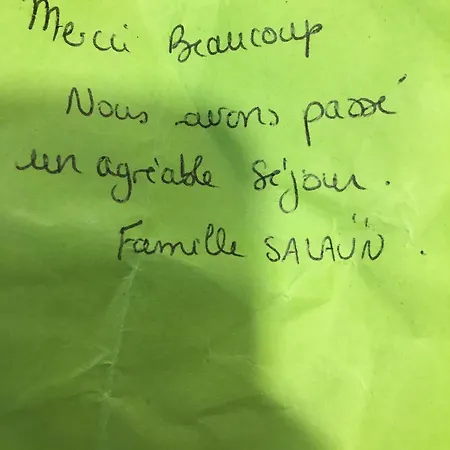 Merci Beaucoup
Nous avons passé
un agréable séjour.
Famille SALAÜN.